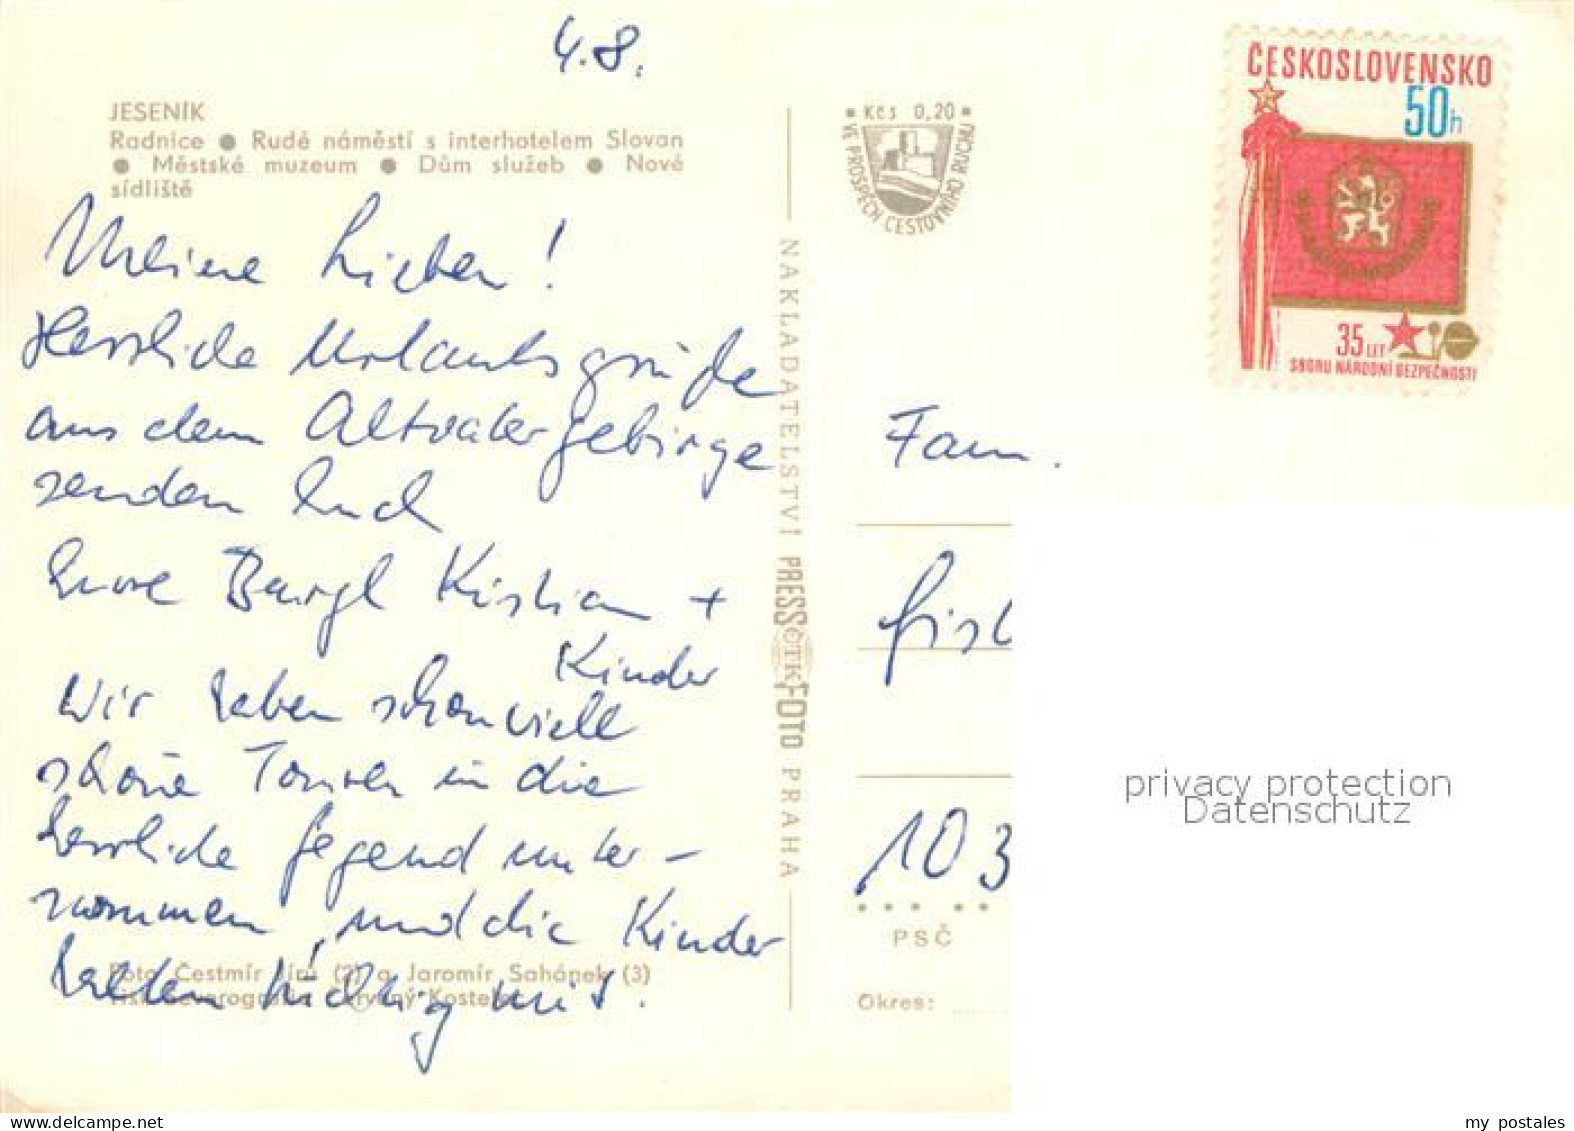 4.8.
JESENÍK
Radnice ● Rudé náměstí s interhotelem Slovan
● Městské muzeum ● Dům služeb ● Nové
sídliště
Meine Lieben!
Herrliche Urlaubsgrüße
aus dem Altvatergebirge
senden Euch
Eure Kristian +
Kinder
Wir haben schon viele
schöne Touren in die
herrliche Gegend unter-
nommen, und die Kinder
halten tüchtig mit.
Foto: Čestmír Jírů (2) a Jaromír Sahánek (3)
Červený Kostelec
NAKLADATELSTVÍ PRESSFOTO PRAHA
ČTK
Kčs 0,20
VE PROSPĚCH CESTOVNÍHO RUCHU
ČESKOSLOVENSKO
50h
35 LET
SBORU NÁRODNÍ BEZPEČNOSTI
Fam.
103
PSČ
Okres:
privacy protection
Datenschutz
my postales